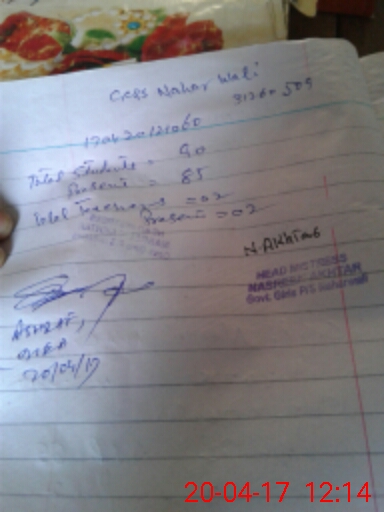 GGPS Nahar Wali
31260509
170420121060
Total Students = 90
Present = 85
Total Teachers = 02
Present = 02
N. Akhtar
HEAD MISTRESS
NASREEN AKHTAR
Govt. Girls P/S Naharwali
ASHRAF,
20/04/17
20-04-17 12:14